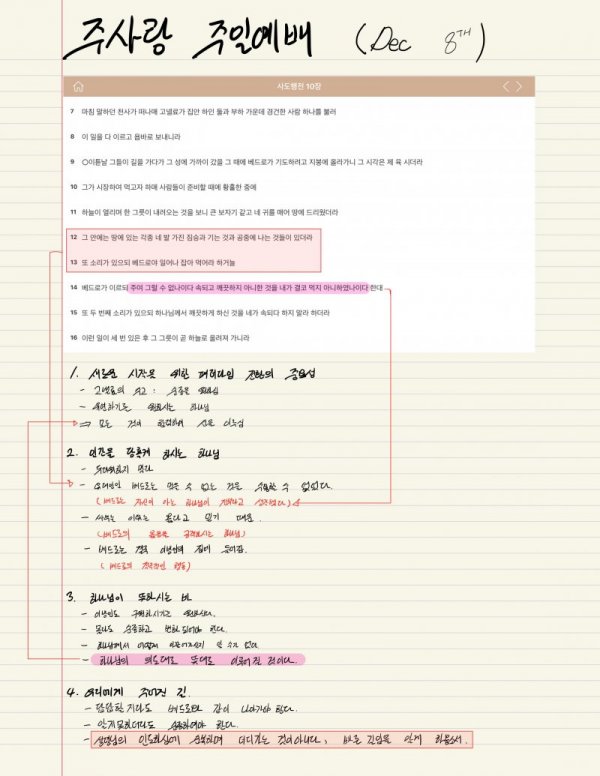 주사랑 주일예배 (Dec 8TH)
사도행전 10장
7 마침 말하던 천사가 떠나매 고넬료가 집안 하인 둘과 부하 가운데 경건한 사람 하나를 불러
8 이 일을 다 이르고 욥바로 보내니라
9 ○이튿날 그들이 길을 가다가 그 성에 가까이 갔을 그 때에 베드로가 기도하려고 지붕에 올라가니 그 시각은 제 육 시더라
10 그가 시장하여 먹고자 하매 사람들이 준비할 때에 황홀한 중에
11 하늘이 열리며 한 그릇이 내려오는 것을 보니 큰 보자기 같고 네 귀를 매어 땅에 드리웠더라
12 그 안에는 땅에 있는 각종 네 발 가진 짐승과 기는 것과 공중에 나는 것들이 있더라
13 또 소리가 있으되 베드로야 일어나 잡아 먹어라 하거늘
14 베드로가 이르되 주여 그럴 수 없나이다 속되고 깨끗하지 아니한 것을 내가 결코 먹지 아니하였나이다 한대
15 또 두 번째 소리가 있으되 하나님께서 깨끗하게 하신 것을 네가 속되다 하지 말라 하더라
16 이런 일이 세 번 있은 후 그 그릇이 곧 하늘로 올려져 가니라
1. 새로운 시작을 위한 패러다임 전환의 중요성
- 고넬료의 수고 :
- 하나님
⇒ 모든 것이 합력하여 선을 이루심
2. 인간을 당황케 하시는 하나님
-
- 유대인인 베드로는 먹을 수 없는 것을 수용할 수 없었다.
(베드로는 자신이 아는 하나님이 전부라고 생각했다)
- 이유는 옳다고 믿기 때문.
(베드로의 하나님)
- 베드로는 결국 이방인의 집에 들어감.
(베드로의 행동)
3. 하나님이 뜻하시는 바
- 이방인도 구원하시기를 원하신다.
- 순종하고 변화되어야 한다.
- 하나님께서 어떻게 알 수가 없다.
- 하나님의 의도대로 뜻대로 이루어질 것이다.
4. 우리에게 주어진 길
- 답답할지라도 베드로와 같이 나아가야 한다.
- 알지 못하더라도 순종하여야 한다.
- 성령님의 인도하심에 순복하며 더디가는 것이 아니라, 바른 길임을 알게 하옵소서.